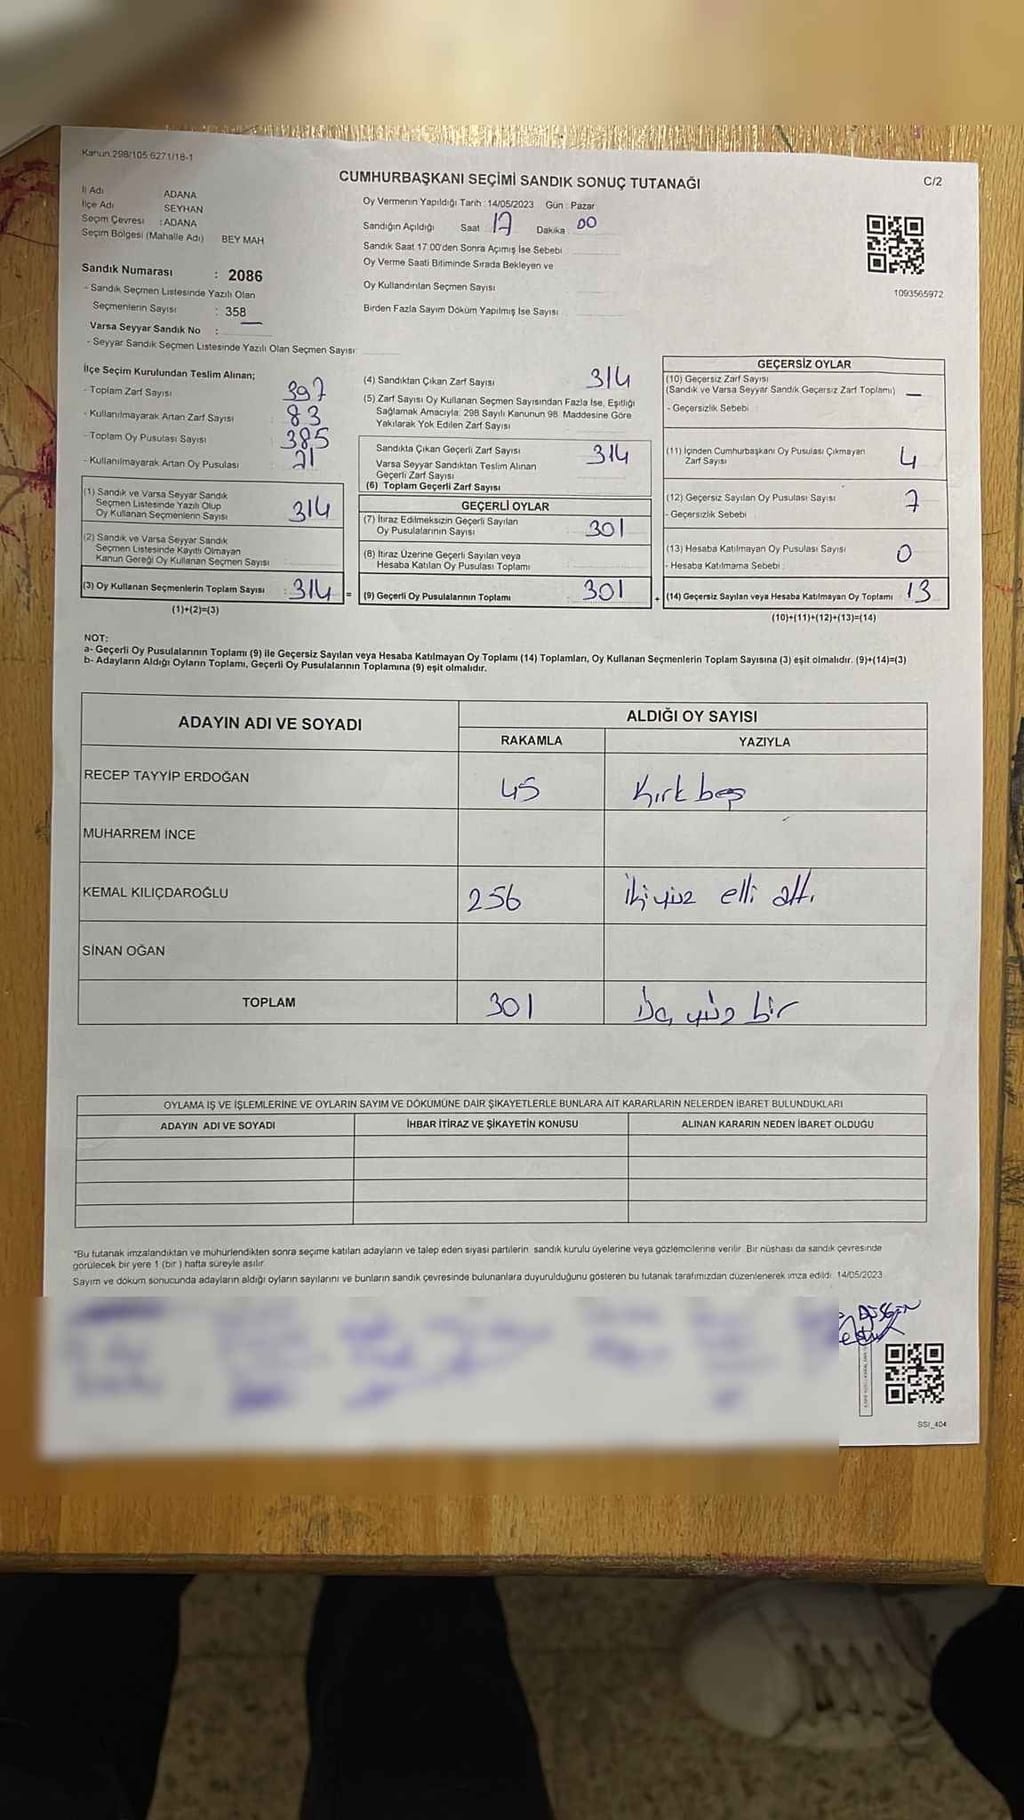 Kanun 298/105 6271/18-1
CUMHURBAŞKANI SEÇİMİ SANDIK SONUÇ TUTANAĞI
C/2
İl Adı ADANA
İlçe Adı SEYHAN
Seçim Çevresi : ADANA
Seçim Bölgesi (Mahalle Adı) BEY MAH
Oy Vermenin Yapıldığı Tarih : 14/05/2023 Gün : Pazar
Sandığın Açıldığı Saat 17 Dakika 00
Sandık Saat 17:00'den Sonra Açımış İse Sebebi
Oy Verme Saati Bitiminde Sırada Bekleyen ve
Oy Kullandırılan Seçmen Sayısı
Birden Fazla Sayım Döküm Yapılmış İse Sayısı
1093565972
Sandık Numarası : 2086
- Sandık Seçmen Listesinde Yazılı Olan
Seçmenlerin Sayısı : 358
Varsa Seyyar Sandık No : —
- Seyyar Sandık Seçmen Listesinde Yazılı Olan Seçmen Sayısı
İlçe Seçim Kurulundan Teslim Alınan;
- Toplam Zarf Sayısı 397
- Kullanılmayarak Artan Zarf Sayısı : 83
- Toplam Oy Pusulası Sayısı : 385
- Kullanılmayarak Artan Oy Pusulası 21
(1) Sandık ve Varsa Seyyar Sandık
Seçmen Listesinde Yazılı Olup
Oy Kullanan Seçmenlerin Sayısı 314
(2) Sandık ve Varsa Seyyar Sandık
Seçmen Listesinde Kayıtlı Olmayan
Kanun Gereği Oy Kullanan Seçmen Sayısı
(3) Oy Kullanan Seçmenlerin Toplam Sayısı : 314 =
(1)+(2)=(3)
(4) Sandıktan Çıkan Zarf Sayısı 314
(5) Zarf Sayısı Oy Kullanan Seçmen Sayısından Fazla İse, Eşitliği
Sağlamak Amacıyla; 298 Sayılı Kanunun 98. Maddesine Göre
Yakılarak Yok Edilen Zarf Sayısı
Sandıkta Çıkan Geçerli Zarf Sayısı 314
Varsa Seyyar Sandıktan Teslim Alınan
Geçerli Zarf Sayısı
(6) Toplam Geçerli Zarf Sayısı
GEÇERLİ OYLAR
(7) İtiraz Edilmeksizin Geçerli Sayılan
Oy Pusulalarının Sayısı 301
(8) İtiraz Üzerine Geçerli Sayılan veya
Hesaba Katılan Oy Pusulası Toplamı
(9) Geçerli Oy Pusulalarının Toplamı 301 +
GEÇERSİZ OYLAR
(10) Geçersiz Zarf Sayısı
(Sandık ve Varsa Seyyar Sandık Geçersiz Zarf Toplamı) —
- Geçersizlik Sebebi
(11) İçinden Cumhurbaşkanı Oy Pusulası Çıkmayan
Zarf Sayısı 4
(12) Geçersiz Sayılan Oy Pusulası Sayısı 7
- Geçersizlik Sebebi
(13) Hesaba Katılmayan Oy Pusulası Sayısı 0
- Hesaba Katılmama Sebebi :
(14) Geçersiz Sayılan veya Hesaba Katılmayan Oy Toplamı 13
(10)+(11)+(12)+(13)=(14)
NOT:
a- Geçerli Oy Pusulalarının Toplamı (9) ile Geçersiz Sayılan veya Hesaba Katılmayan Oy Toplamı (14) Toplamları, Oy Kullanan Seçmenlerin Toplam Sayısına (3) eşit olmalıdır. (9)+(14)=(3)
b- Adayların Aldığı Oyların Toplamı, Geçerli Oy Pusulalarının Toplamına (9) eşit olmalıdır.
ADAYIN ADI VE SOYADI ALDIĞI OY SAYISI
RAKAMLA YAZIYLA
RECEP TAYYİP ERDOĞAN 45 Kırk beş
MUHARREM İNCE
KEMAL KILIÇDAROĞLU 256 İkiyüz elli altı
SİNAN OĞAN
TOPLAM 301 Üç yüz bir
OYLAMA İŞ VE İŞLEMLERİNE VE OYLARIN SAYIM VE DÖKÜMÜNE DAİR ŞİKAYETLERLE BUNLARA AİT KARARLARIN NELERDEN İBARET BULUNDUKLARI
ADAYIN ADI VE SOYADI İHBAR İTİRAZ VE ŞİKAYETİN KONUSU ALINAN KARARIN NEDEN İBARET OLDUĞU
*Bu tutanak imzalandıktan ve mühürlendikten sonra seçime katılan adayların ve talep eden siyasi partilerin sandık kurulu üyelerine veya gözlemcilerine verilir. Bir nüshası da sandık çevresinde
görülecek bir yere 1 (bir) hafta süreyle asılır.
Sayım ve döküm sonucunda adayların aldığı oyların sayılarını ve bunların sandık çevresinde bulunanlara duyurulduğunu gösteren bu tutanak tarafımızdan düzenlenerek imza edildi: 14/05/2023
SSI_404